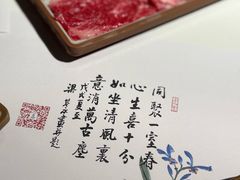 同聚一室春
心生喜十分
如坐清風裏
意消萬古塵
戊戌夏至